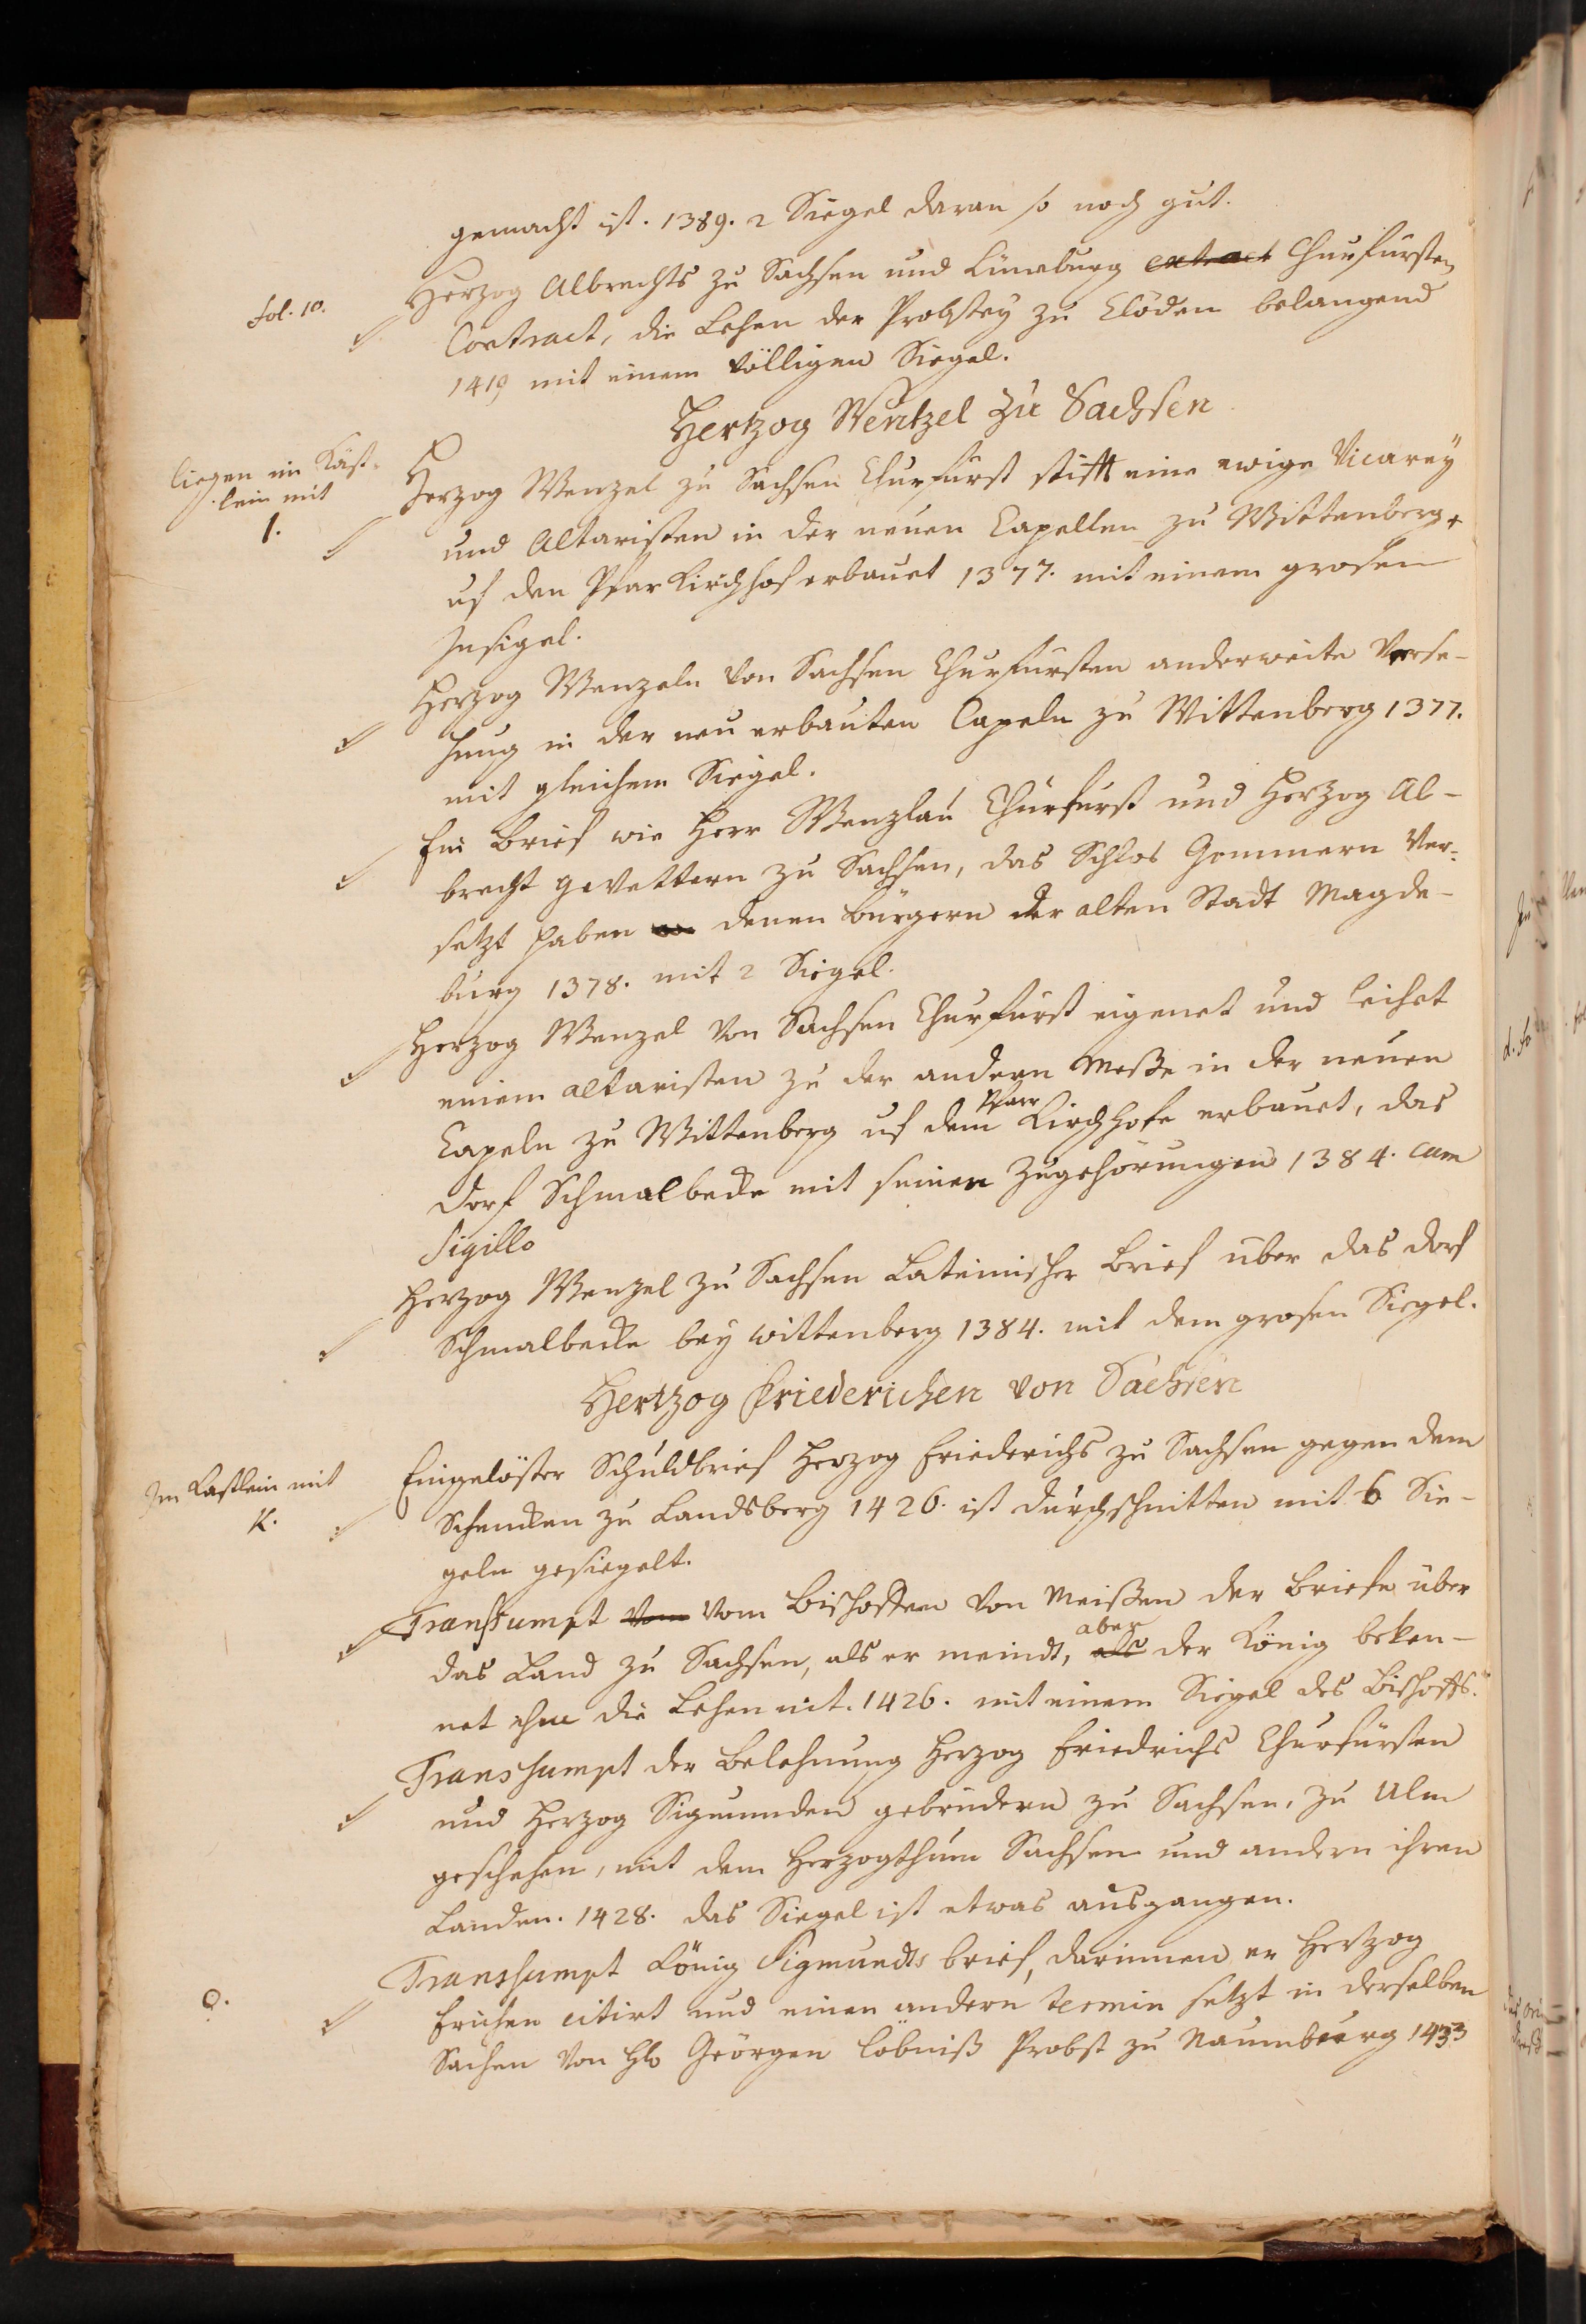 gemacht ist. 1389. 2 Siegel daran so noch gut.
fol. 10.
Herzog Albrechts zu Sachsen und Lüneburg extract Churfürsten
Contract, die Lehen der Probstey zu Clöden belangend
1419 mit einem völligen Siegel.
Hertzog Wentzel zu Sachsen
liegen im Käst-
lein mit
I.
Herzog Wenzel zu Sachsen Churfürst stifft eine ewige Vicarey
und Altaristen in der neuen Capellen zu Wittenberg
uf den Pfarkirchhof erbauet 1377. mit einem grosen
Insigel.
Herzog Wenzeln von Sachsen Churfürsten anderweite Verse-
hung in der neu erbauten Capeln zu Wittenberg 1377.
mit gleichem Siegel.
Ein Brief wie Herr Wenzlau Churfürst und Herzog Al-
brecht gevettern zu Sachsen, das Schlos Gommern Ver-
setzt haben denen bürgern der alten Stadt Magde-
burg 1378. mit 2 Siegel.
Herzog Wenzel von Sachsen Churfürst eigenet und leihet
einem altaristen zu der andern Meße in der neuen
Capeln zu Wittenberg uf dem Pfarr Kirchhofe erbauet, das
dorf Schmalbecke mit seinen Zugehörungen 1384. cum
Sigillo
Herzog Wenzel zu Sachsen Lateinischer Brief über das dorf
Schmalbecke bey Wittenberg 1384. mit dem grosen Siegel.
Hertzog Friederichen von Sachsen
Im Kastlein mit
K.
Eingelöster Schuldbrief Herzog Friederichs zu Sachsen gegen dem
Schencken zu Landsberg 1426. ist durchschnitten mit 6 Sie-
geln gesiegelt.
Transsumpt vom vom Bischoffen von Meißen der Briefe über
das Land zu Sachsen, als er meindt, als aber der König beken-
net ihme die Lehen nit. 1426. mit einem Siegel des Bischoffs.
Transsumpt der Belehnung Herzog Friedrichs Churfürsten
und Herzog Sigmunden gebrüdern zu Sachsen, zu Ulm
geschehen, mit dem Herzogthum Sachsen und andern ihren
Landen. 1428. das Siegel ist etwas ausgangen.
Transsumpt König Sigmundts brief, darinnen er Hertzog
Erichen citirt und einen andern termin setzt in derselben
Sachen von Georgen Löbniß Probst zu Naumburg 1433